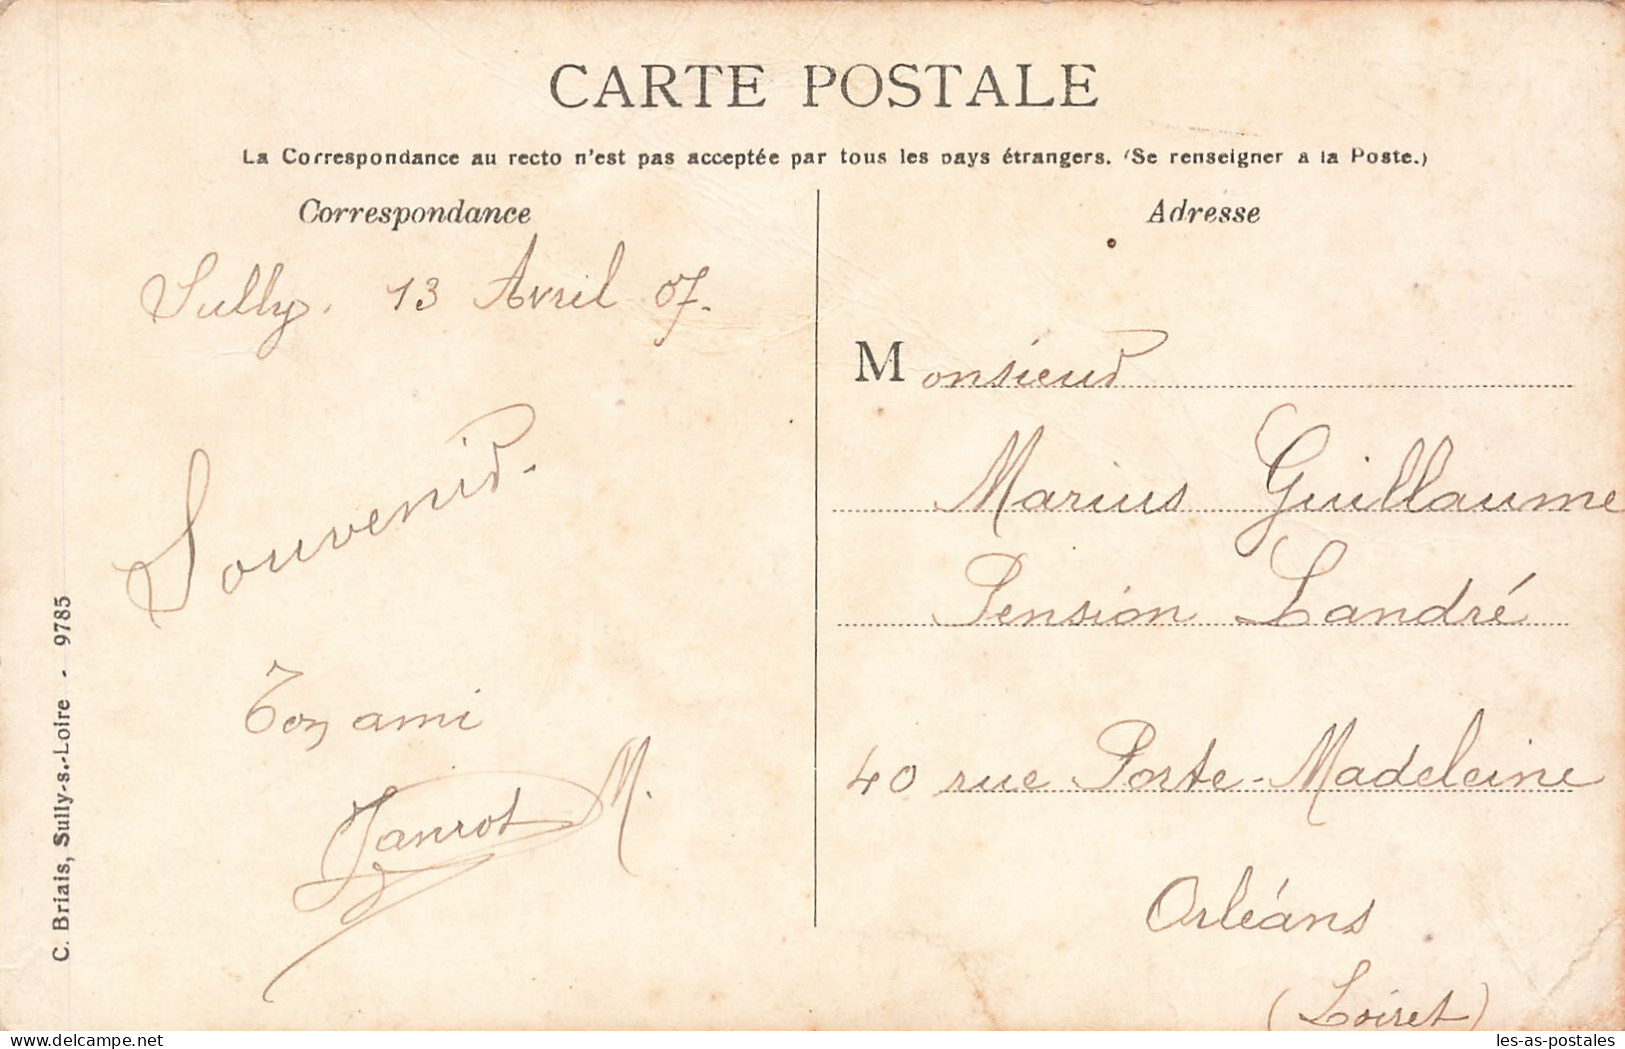 CARTE POSTALE
La Correspondance au recto n'est pas acceptée par tous les pays étrangers. (Se renseigner a la Poste.)
Correspondance
Sully. 13 Avril 07.
Souvenir.
Ton ami
Janrot M.
Adresse
Monsieur
Marius Guillaume
Pension Landré
40 rue Porte-Madeleine
Orléans
(Loiret)
C. Briais, Sully-s.-Loire - 9785
delcampe.net
les-as-postales